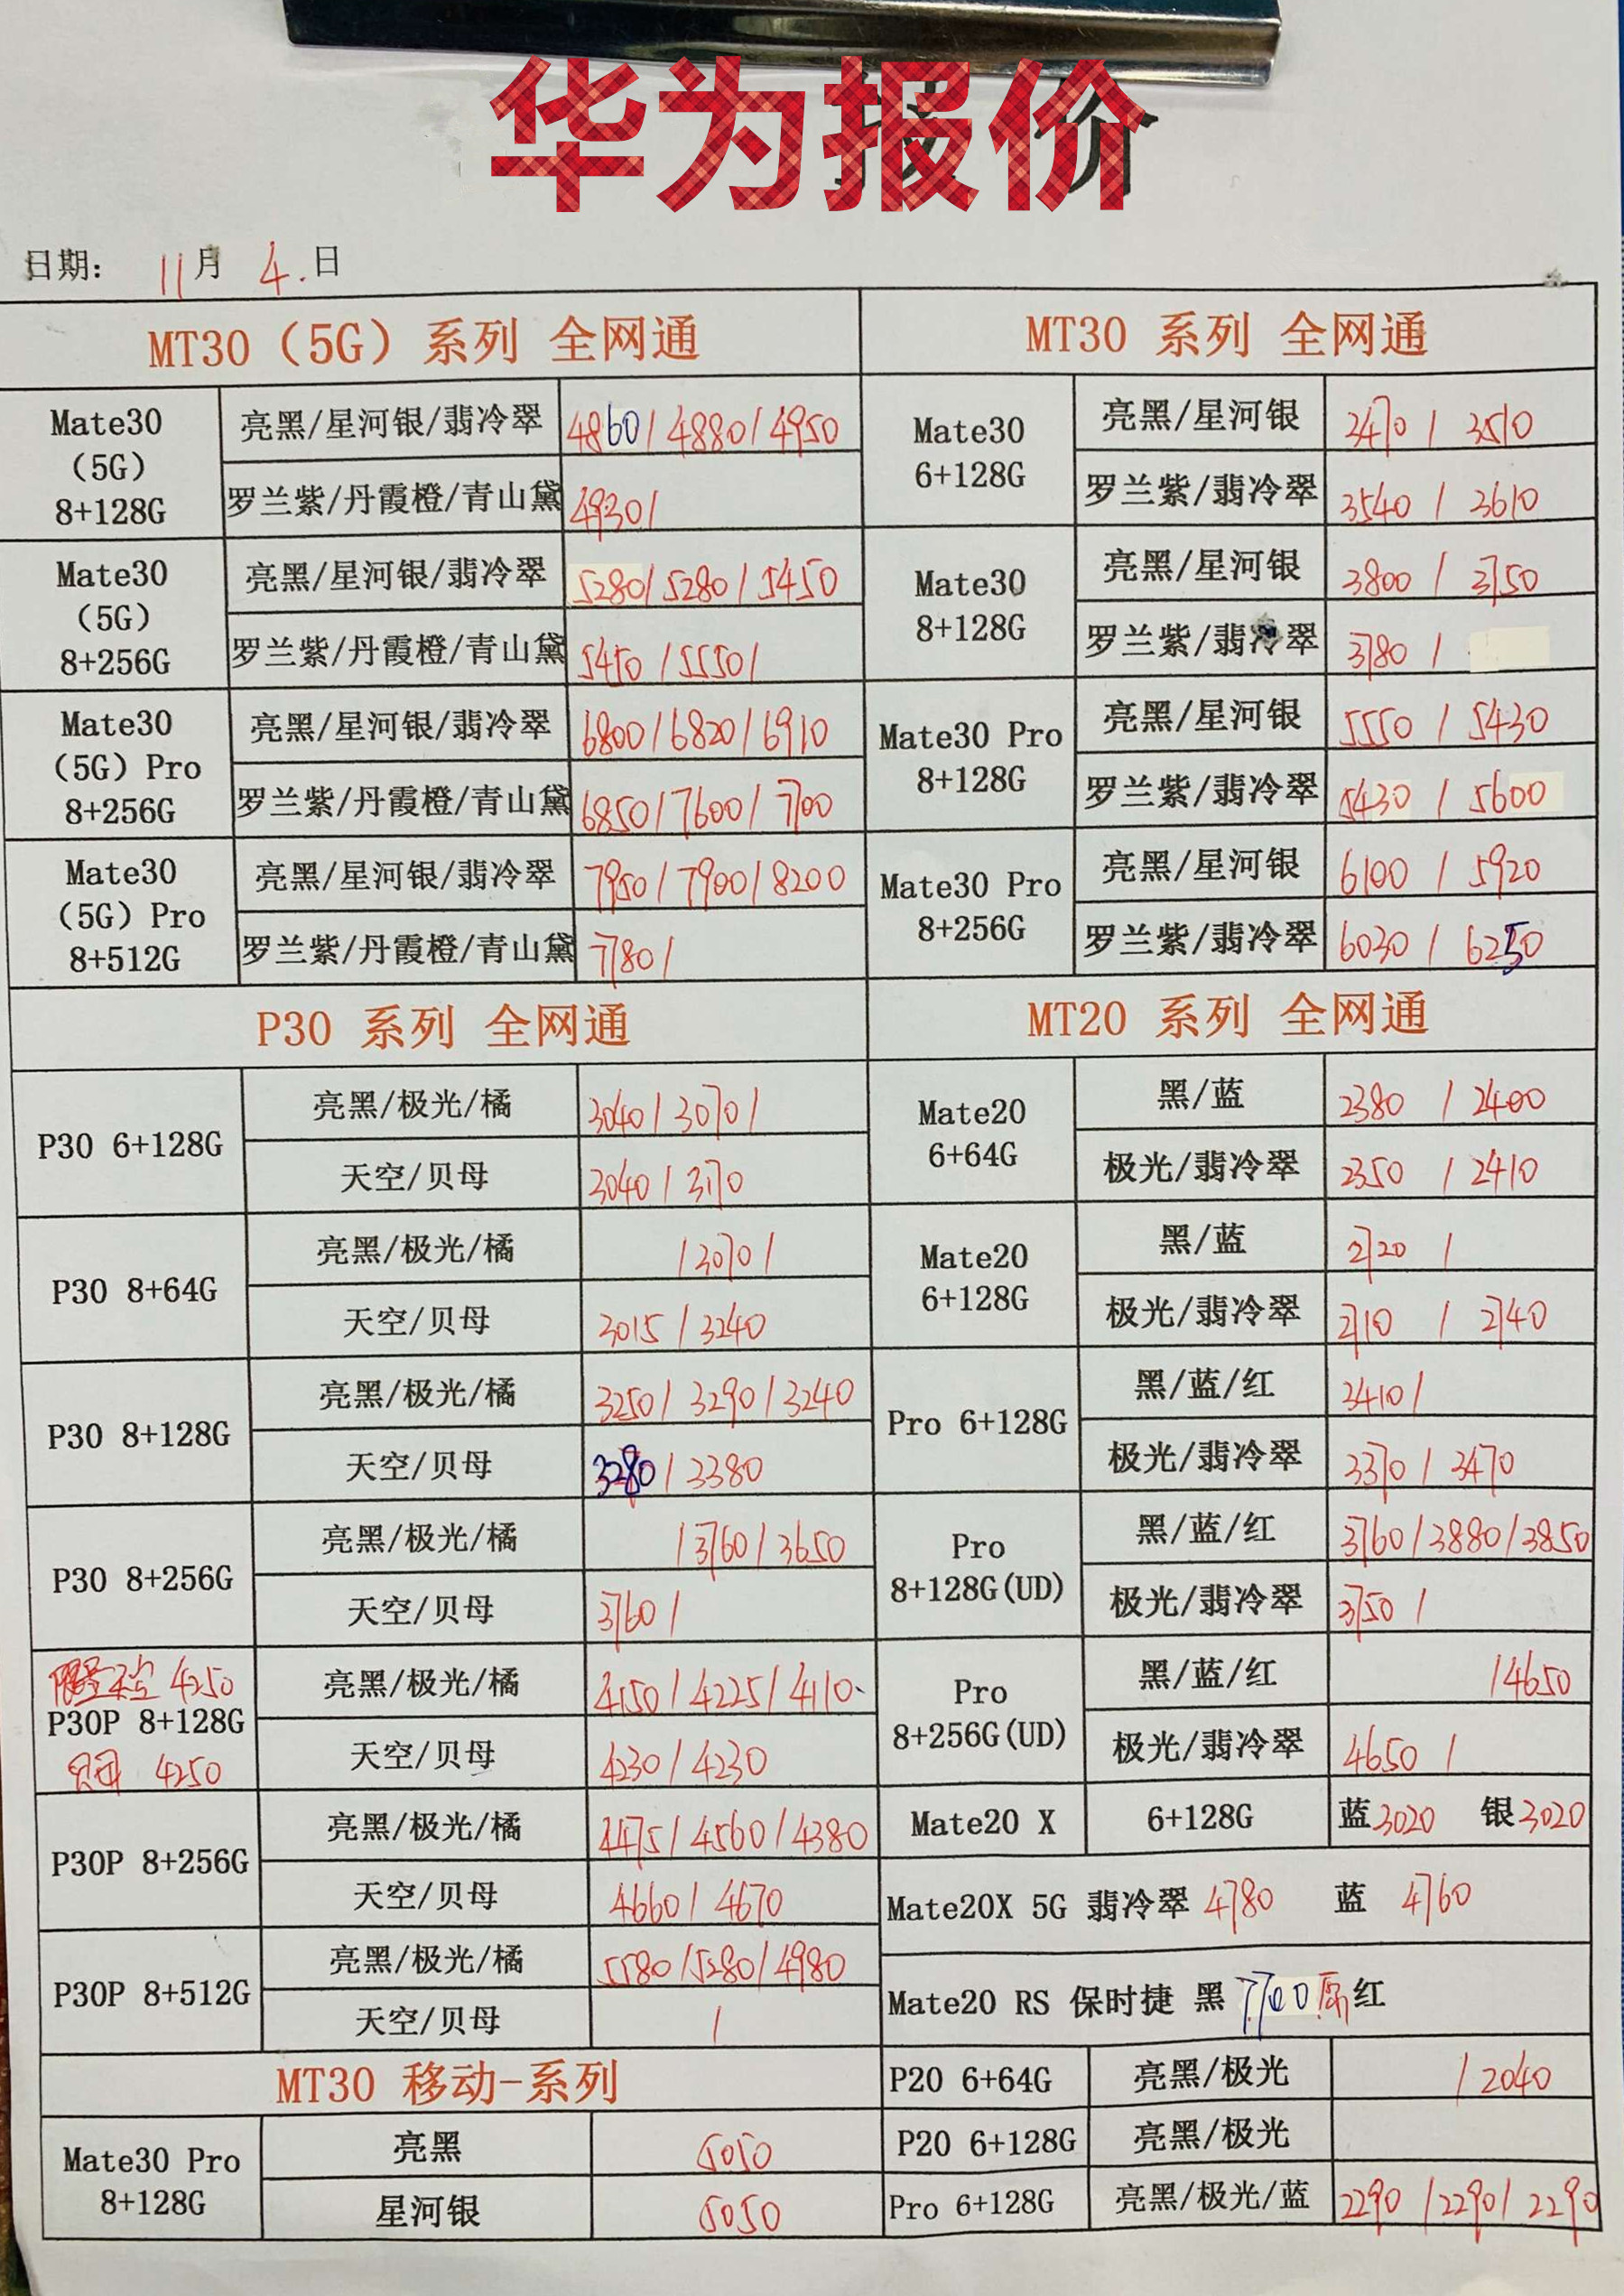 华为报价
日期： 11月 4.日
MT30（5G）系列 全网通
Mate30
（5G）
8+128G
亮黑/星河银/翡冷翠 4860/4880/4950
罗兰紫/丹霞橙/青山黛 4930/
Mate30
（5G）
8+256G
亮黑/星河银/翡冷翠 5280/5280/5450
罗兰紫/丹霞橙/青山黛 5450/5550/
Mate30
（5G）Pro
8+256G
亮黑/星河银/翡冷翠 6800/6820/6910
罗兰紫/丹霞橙/青山黛 6850/7600/7700
Mate30
（5G）Pro
8+512G
亮黑/星河银/翡冷翠 7950/7900/8200
罗兰紫/丹霞橙/青山黛 7780/
MT30 系列 全网通
Mate30
6+128G
亮黑/星河银 3470/3510
罗兰紫/翡冷翠 3540/3610
Mate30
8+128G
亮黑/星河银 3800/3750
罗兰紫/翡冷翠 3780/
Mate30 Pro
8+128G
亮黑/星河银 5550/5430
罗兰紫/翡冷翠 5430/5600
Mate30 Pro
8+256G
亮黑/星河银 6100/5920
罗兰紫/翡冷翠 6030/6250
P30 系列 全网通
P30 6+128G
亮黑/极光/橘 3040/3070/
天空/贝母 3040/3170
P30 8+64G
亮黑/极光/橘 /3070/
天空/贝母 3015/3240
P30 8+128G
亮黑/极光/橘 3250/3290/3240
天空/贝母 3280/3380
P30 8+256G
亮黑/极光/橘 /3760/3650
天空/贝母 3760/
4250
P30P 8+128G
贝母 4250
亮黑/极光/橘 4150/4225/4110
天空/贝母 4230/4230
P30P 8+256G
亮黑/极光/橘 4475/4560/4380
天空/贝母 4660/4670
P30P 8+512G
亮黑/极光/橘 5580/5280/4980
天空/贝母 /
MT30 移动-系列
Mate30 Pro
8+128G
亮黑 5050
星河银 5050
MT20 系列 全网通
Mate20
6+64G
黑/蓝 2380/2400
极光/翡冷翠 2350/2410
Mate20
6+128G
黑/蓝 2720/
极光/翡冷翠 2710/2740
Pro 6+128G
黑/蓝/红 3410/
极光/翡冷翠 3370/3470
Pro
8+128G(UD)
黑/蓝/红 3760/3880/3850
极光/翡冷翠 3750/
Pro
8+256G(UD)
黑/蓝/红 /4650
极光/翡冷翠 4650/
Mate20 X 6+128G 蓝3020 银3020
Mate20X 5G 翡冷翠 4780 蓝 4760
Mate20 RS 保时捷 黑 7700 红
P20 6+64G 亮黑/极光 /2040
P20 6+128G 亮黑/极光
Pro 6+128G 亮黑/极光/蓝 2290/2290/2290